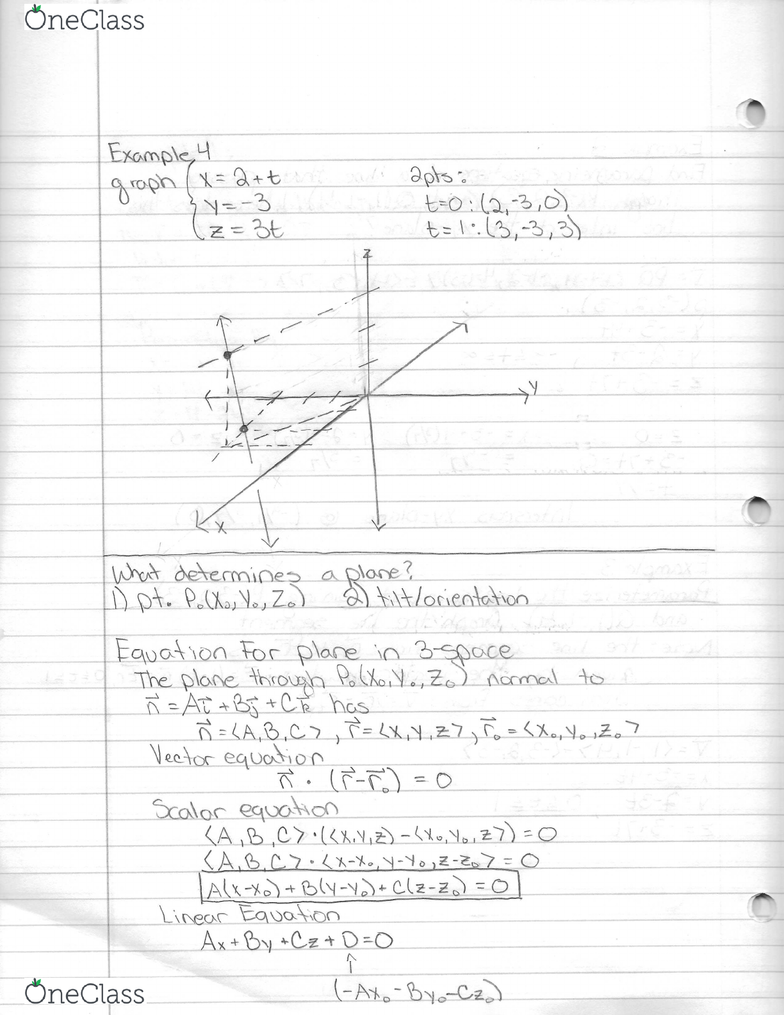 OneClass
Example 4
graph { x = 2+t
y = -3
z = 3t
2pts:
t=0 : (2,-3,0)
t=1 : (3,-3,3)
z
y
x
What determines a plane?
1) pt. P₀(x₀,y₀,z₀) 2) tilt/orientation
Equation For plane in 3-space
The plane through P₀(x₀,y₀,z₀) normal to
n⃗ = Ai⃗ + Bj⃗ + Ck⃗ has
n⃗ = <A,B,C>, r⃗ = <x,y,z>, r⃗₀ = <x₀,y₀,z₀>
Vector equation
n⃗ · (r⃗-r⃗₀) = 0
Scalar equation
<A,B,C>·(<x,y,z) - <x₀,y₀,z>) = 0
<A,B,C> · <x-x₀, y-y₀, z-z₀> = 0
A(x-x₀) + B(y-y₀) + C(z-z₀) = 0
Linear Equation
Ax + By + Cz + D = 0
↑
(-Ax₀ - By₀ - Cz₀)
OneClass